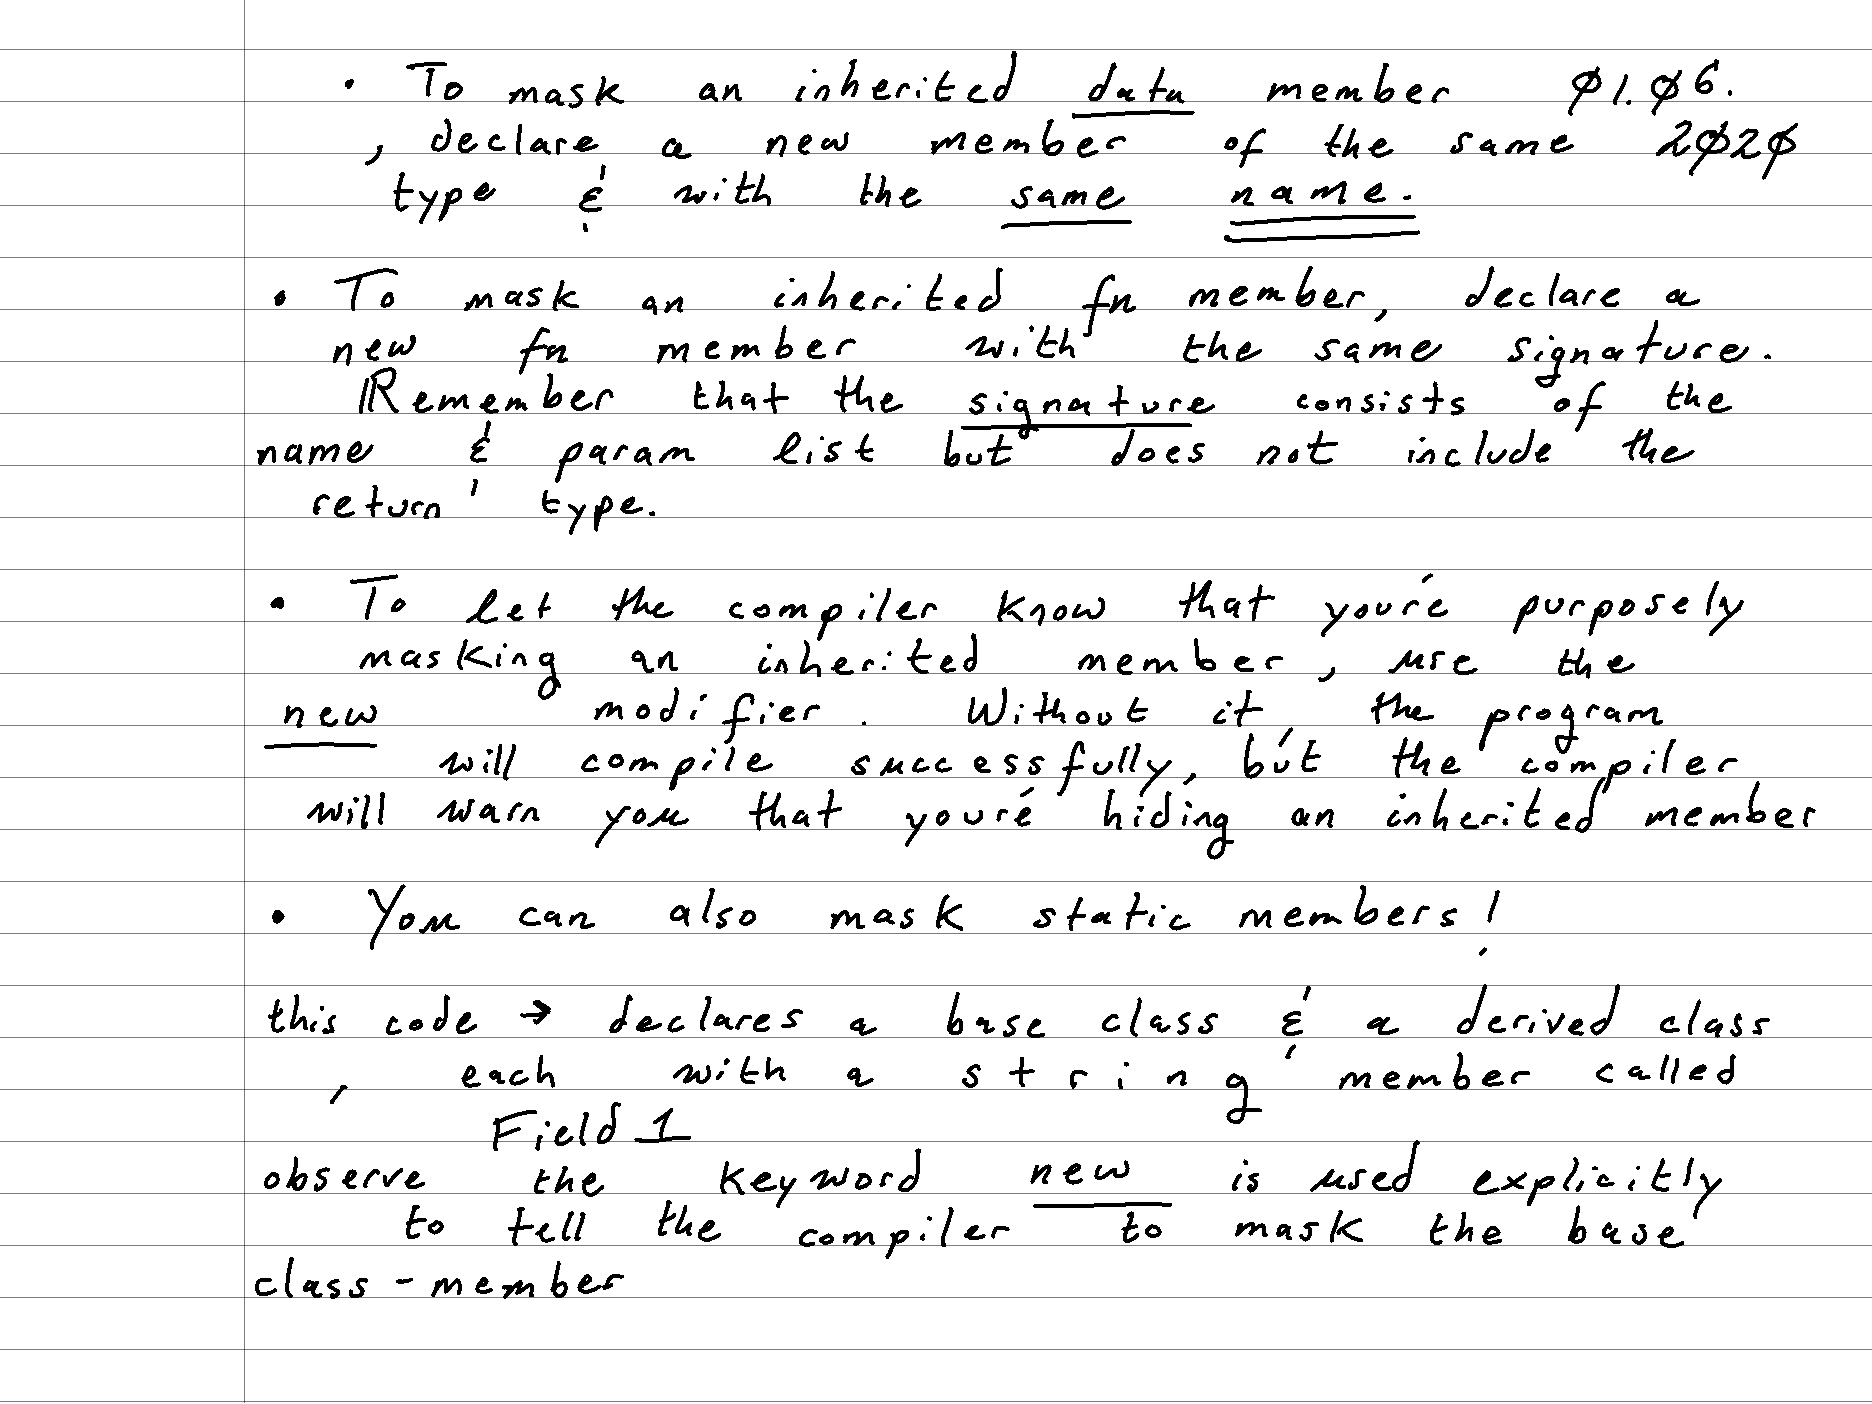 • To mask an inherited data member Ø1.Ø6.
, declare a new member of the same 2Ø2Ø
type & with the same name.
• To mask an inherited fn member, declare a
new fn member with the same signature.
Remember that the signature consists of the
name & param list but does not include the
return type.
• To let the compiler know that you're purposely
masking an inherited member, use the
new modifier. Without it, the program
will compile successfully, but the compiler
will warn you that you're hiding an inherited member
• You can also mask static members!
this code → declares a base class & a derived class
, each with a string member called
Field 1
observe the keyword new is used explicitly
to tell the compiler to mask the base
class - member